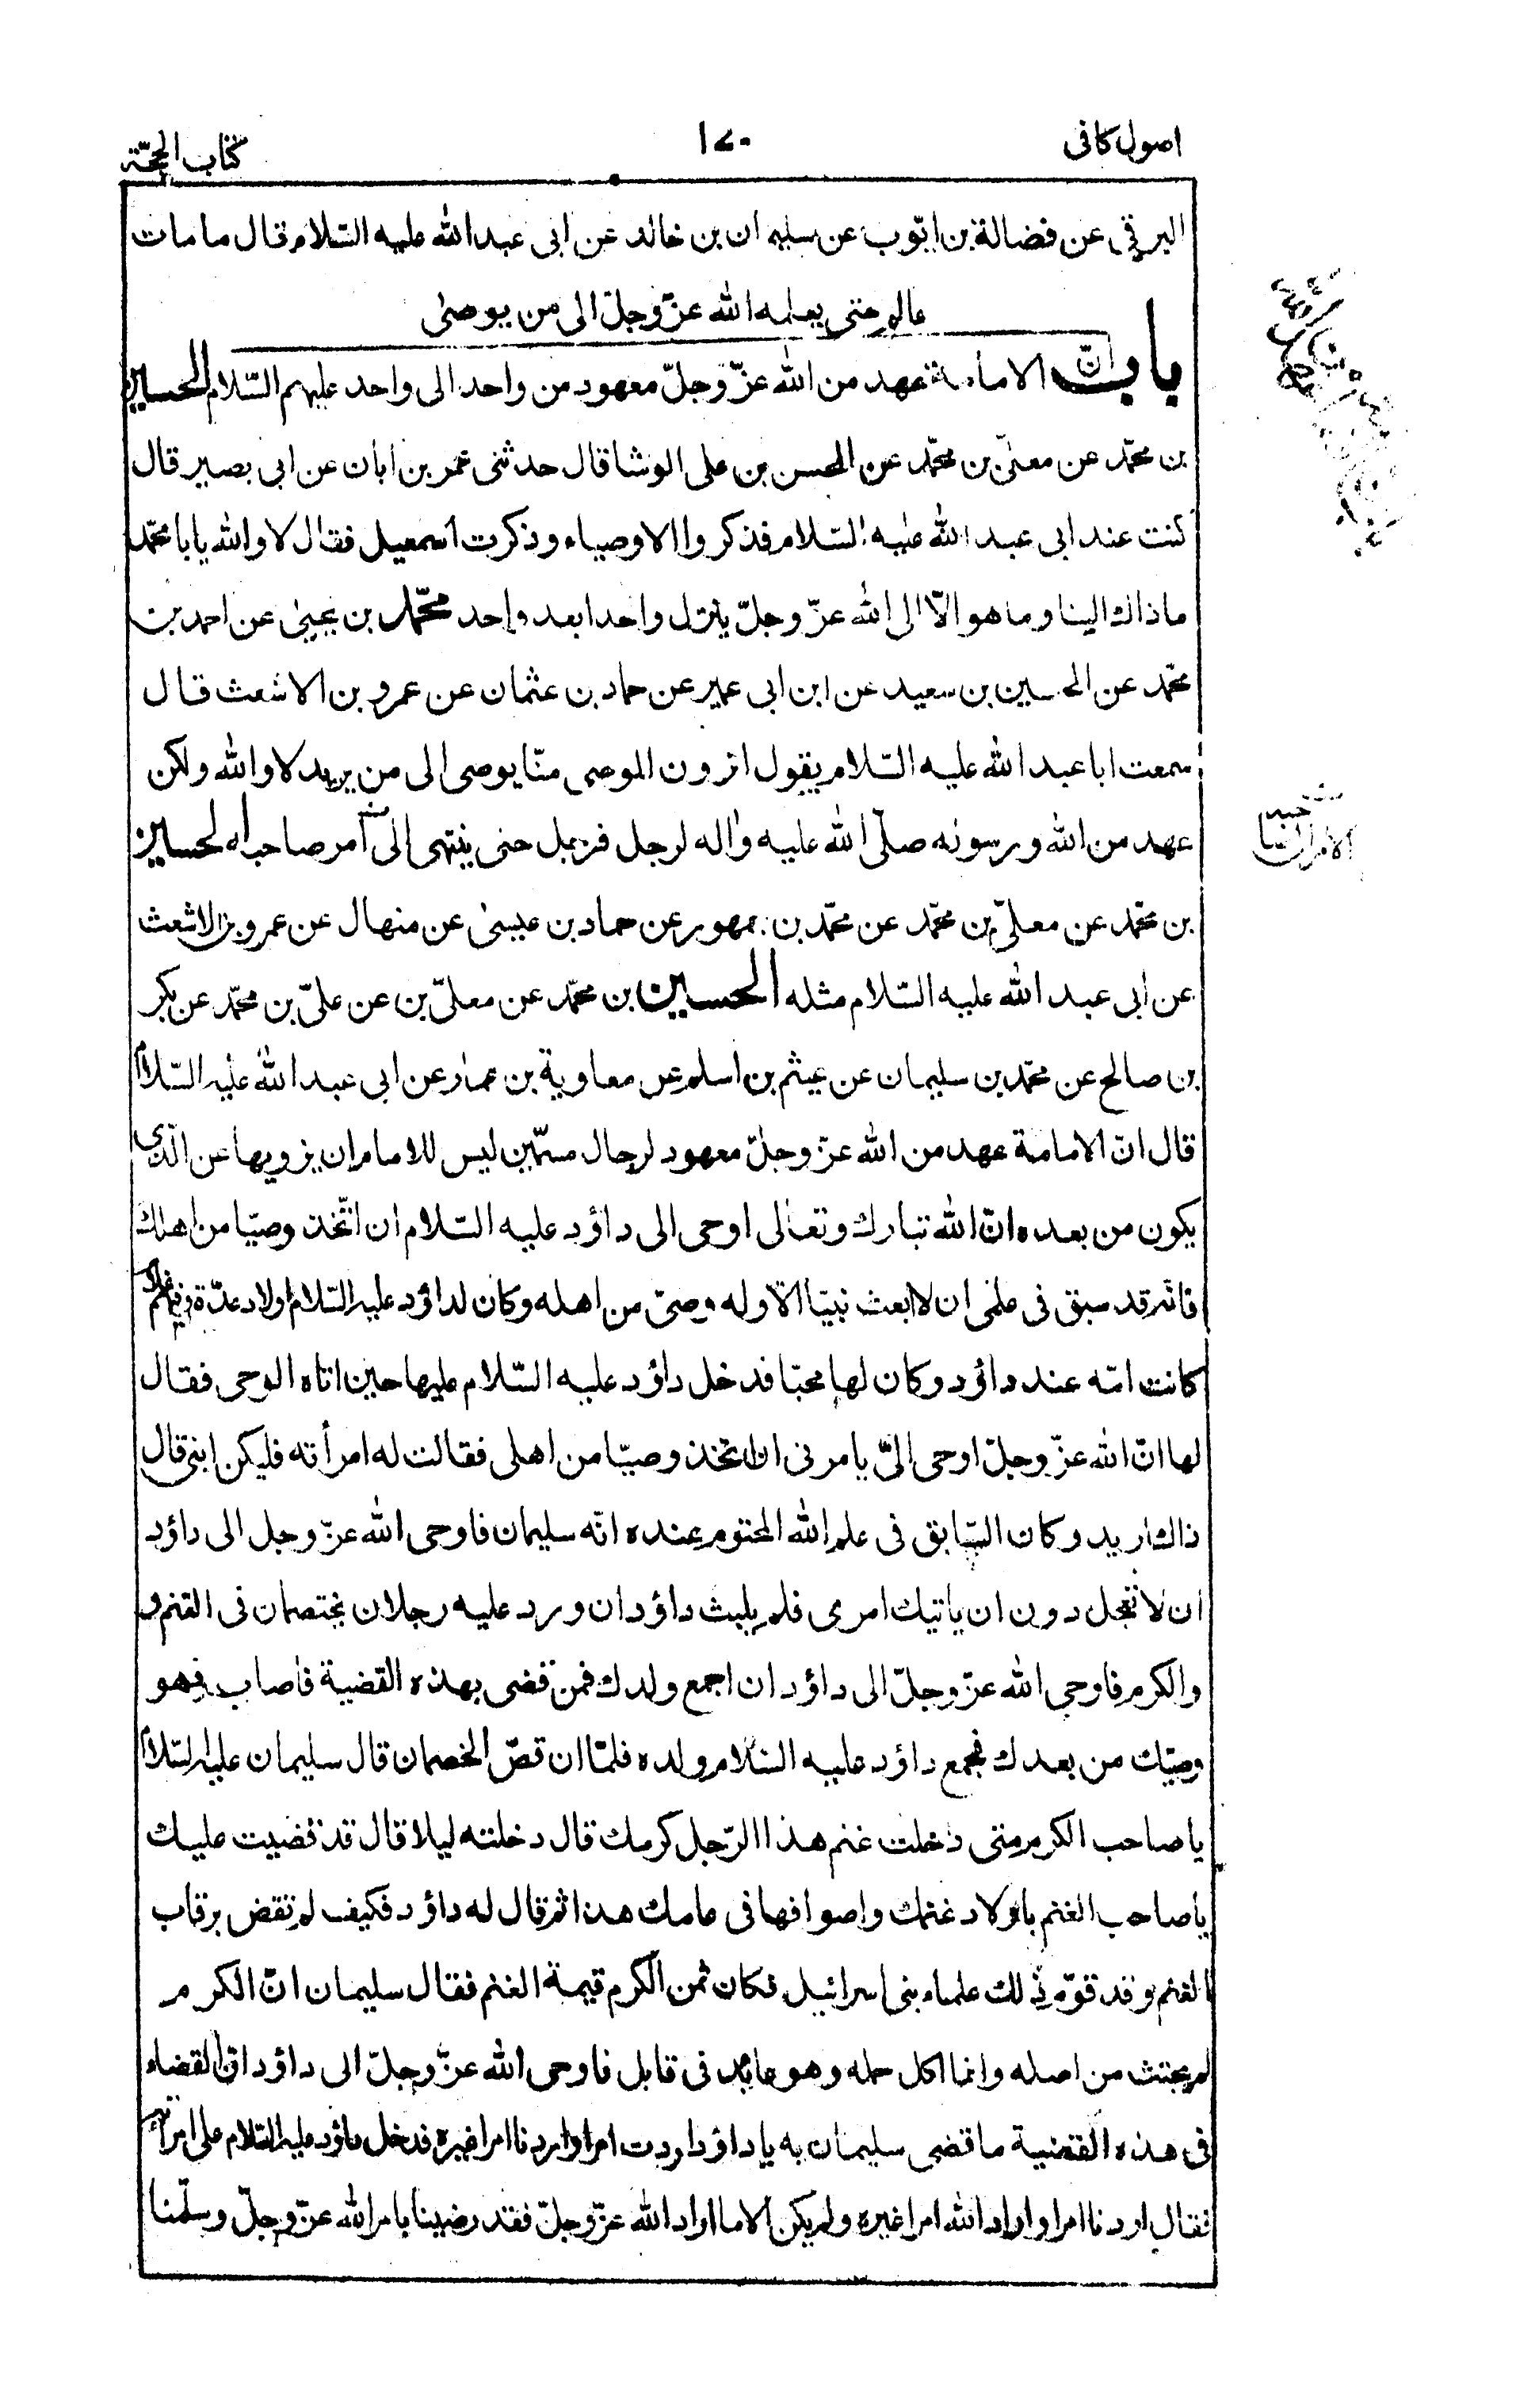 اصول كافى
١٧٠
كتاب الحجّة
البرقى عن فضالة بن ايّوب عن سليمان بن خالد عن ابى عبد الله عليه السّلام قال ما مات
عالم حتى يعلمه الله عزّ وجلّ الى من يوصى
باب انّ الامامة عهد من الله عزّ وجلّ معهود من واحد الى واحد عليهم السّلام الحسين
بن محمّد عن معلىّ بن محمّد عن الحسن بن على الوشا قال حدثنى عمر بن ابان عن ابى بصير قال
كنت عند ابى عبد الله عليه السّلام فذكروا الاوصياء وذكرت اسمعيل فقال لا والله يا با محمّد
ما ذاك الينا وما هو الّا الى الله عزّ وجلّ ينزل واحدا بعد واحد محمّد بن يحيىٰ عن احمد بن
محمّد عن الحسين بن سعيد عن ابن ابى عمير عن حماد بن عثمان عن عمرو بن الاشعث قال
سمعت ابا عبد الله عليه السّلام يقول اترون الموصى منّا يوصى الى من يريد لا والله ولكن
عهد من الله ورسوله صلّى الله عليه واٰله لرجل فرجل حتى ينتهى الى امر صاحبه الحسين
بن محمّد عن معلىّ بن محمّد عن محمّد بن جمهور عن حماد بن عيسىٰ عن منهال عن عمرو بن الاشعث
عن ابى عبد الله عليه السّلام مثله الحسين بن محمّد عن معلىّ بن عن علىّ بن محمّد عن بكر
بن صالح عن محمّد بن سليمان عن عيثم بن اسلم عن معاوية بن عمار عن ابى عبد الله عليه السّلام
قال انّ الامامة عهد من الله عزّ وجلّ معهود لرجال مسمّين ليس للامام ان يزويها عن الّذى
يكون من بعده انّ الله تبارك وتعالى اوحى الى داؤد عليه السّلام ان اتّخذ وصيّا من اهلك
فانّه قد سبق فى علمى ان لا ابعث نبيّا الّا وله وصىّ من اهله وكان لداؤد عليه السّلام اولاد عدّة وفيهم غلام
كانت امّه عند داؤد وكان لها محبّا فدخل داؤد عليه السّلام عليها حين اتاه الوحى فقال
لها انّ الله عزّ وجلّ اوحى الىّ يامرنى ان اتخذ وصيّا من اهلى فقالت له امرأته فليكن ابنى قال
ذاك اريد وكان السّابق فى علم الله المحتوم عنده انّه سليمان فاوحى الله عزّ وجل الى داؤد
ان لا تعجل دون ان ياتيك امرى فلم يلبث داؤد ان ورد عليه رجلان يختصمان فى الغنم و
والكرم فاوحى الله عزّ وجلّ الى داؤد ان اجمع ولدك فمن قضى بهذه القضية فاصاب فهو
وصيّك من بعدك فجمع داؤد عليه السّلام ولده فلمّا ان قصّ الخصمان قال سليمان عليه السّلام
يا صاحب الكرم متى دخلت غنم هذا الرّجل كرمك قال دخلته ليلا قال قد قضيت عليك
يا صاحب الغنم باولاد غنمك واصوافها فى عامك هذا ثم قال له داؤد فكيف لم تقض برقاب
الغنم وقد قوّم ذلك علماء بنى اسرائيل فكان ثمن الكرم قيمة الغنم فقال سليمان انّ الكرم
لم يجتث من اصله وانما اكل حمله وهو عايد فى قابل فاوحى الله عزّ وجلّ الى داؤد انّ القضاء
فى هذه القضية ما قضى سليمان به يا داؤد اردت امرا واردنا امرا غيره فدخل داؤد عليه السّلام على امرأته
فقال اردنا امرا واراد الله امرا غيره ولم يكن الا ما اراد الله عزّ وجلّ فقد رضينا بامر الله عزّ وجلّ وسلّمنا